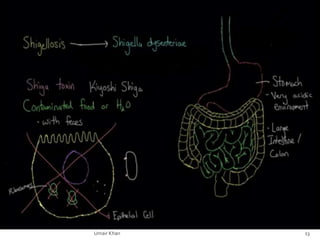 Shigellosis → Shigella dysenteriae
Shiga toxin Kiyoshi Shiga
Contaminated food or H2O
- with feces
Ribosomes
Epithelial Cell
Stomach
- Very acidic
Enviroment
- Large
Intestine /
Colon
Umair Khan
13